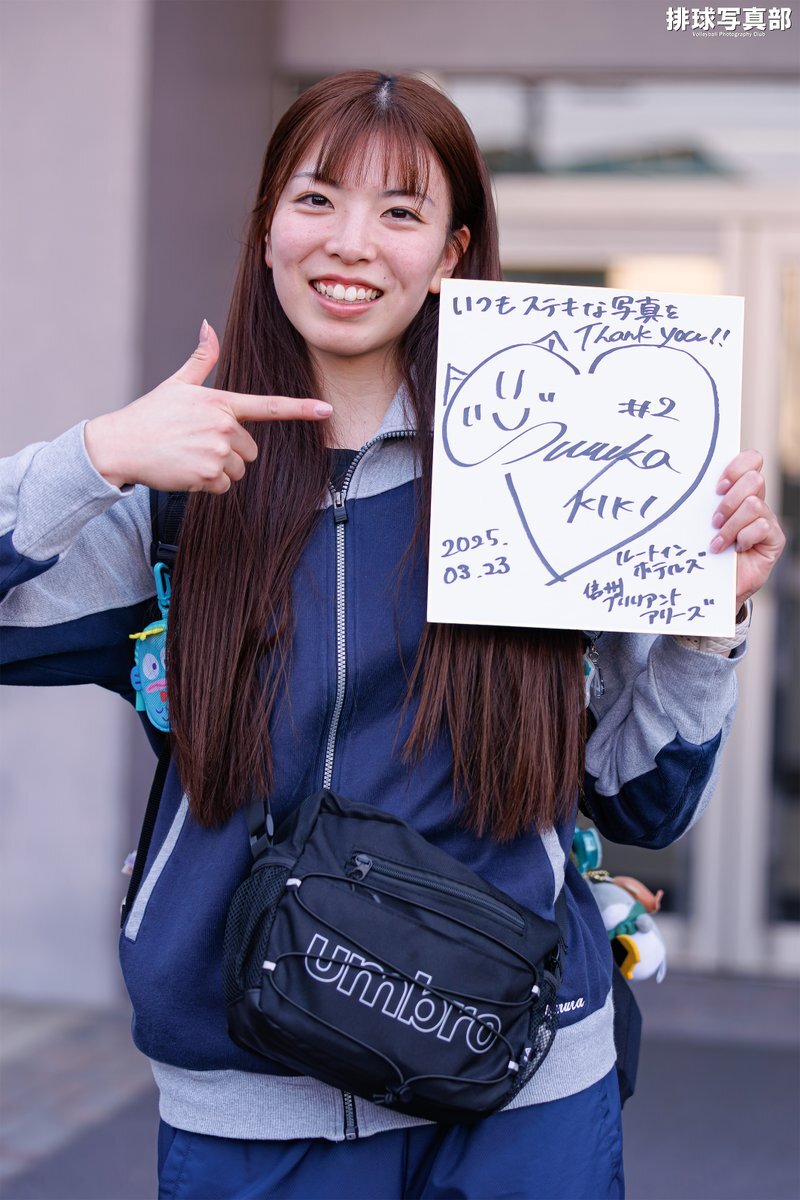 排球写真部
Volleyball Photography Club
いつもステキな写真を
Thank you!!
#2
KIKI
2025.
03.23
ルートイン
ホテルズ
信州
ブリリアント
アリーズ
umbro